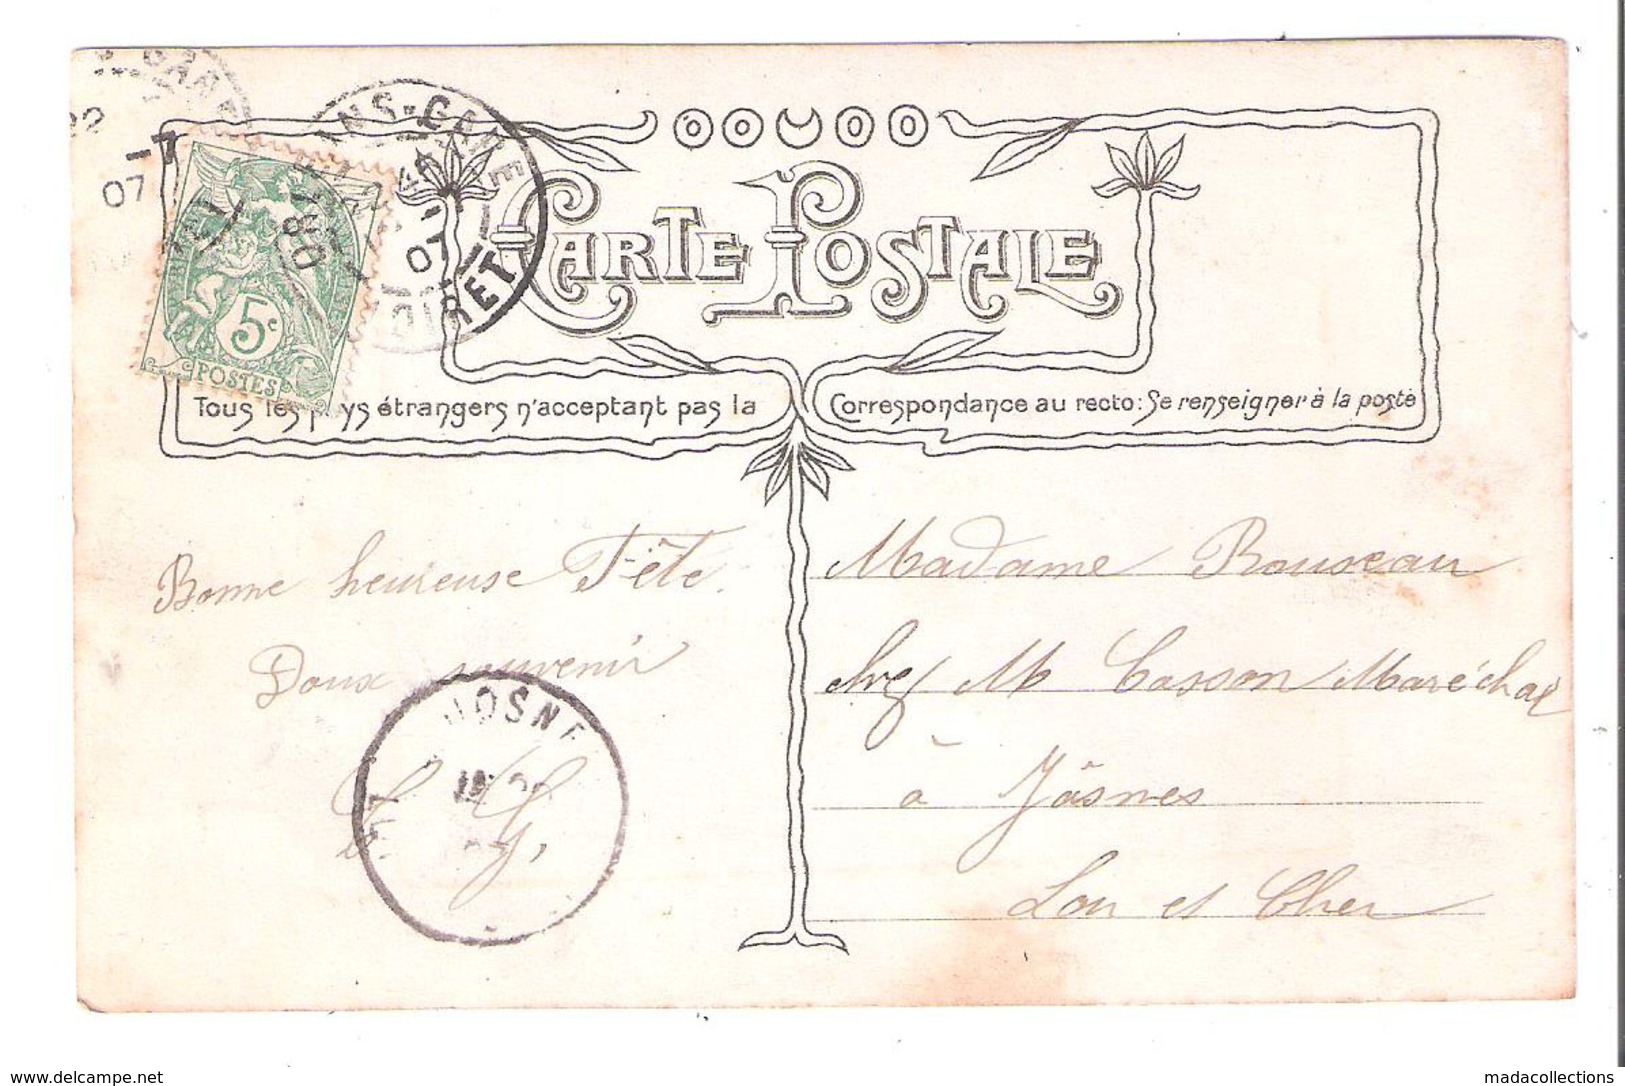 GARE
22
-7
07
ANS-GARE
-7
07
LOIRET
5c
POSTES
CARTE POSTALE
Tous les pays étrangers n'acceptant pas la Correspondance au recto: Se renseigner à la poste
Bonne heureuse Fête.
Doux souvenir
G.
Madame Rouseau
chez M Cosson Maréchal
à Jôsnes
Loir et Cher
JOSNE
www.delcampe.net
madacollections